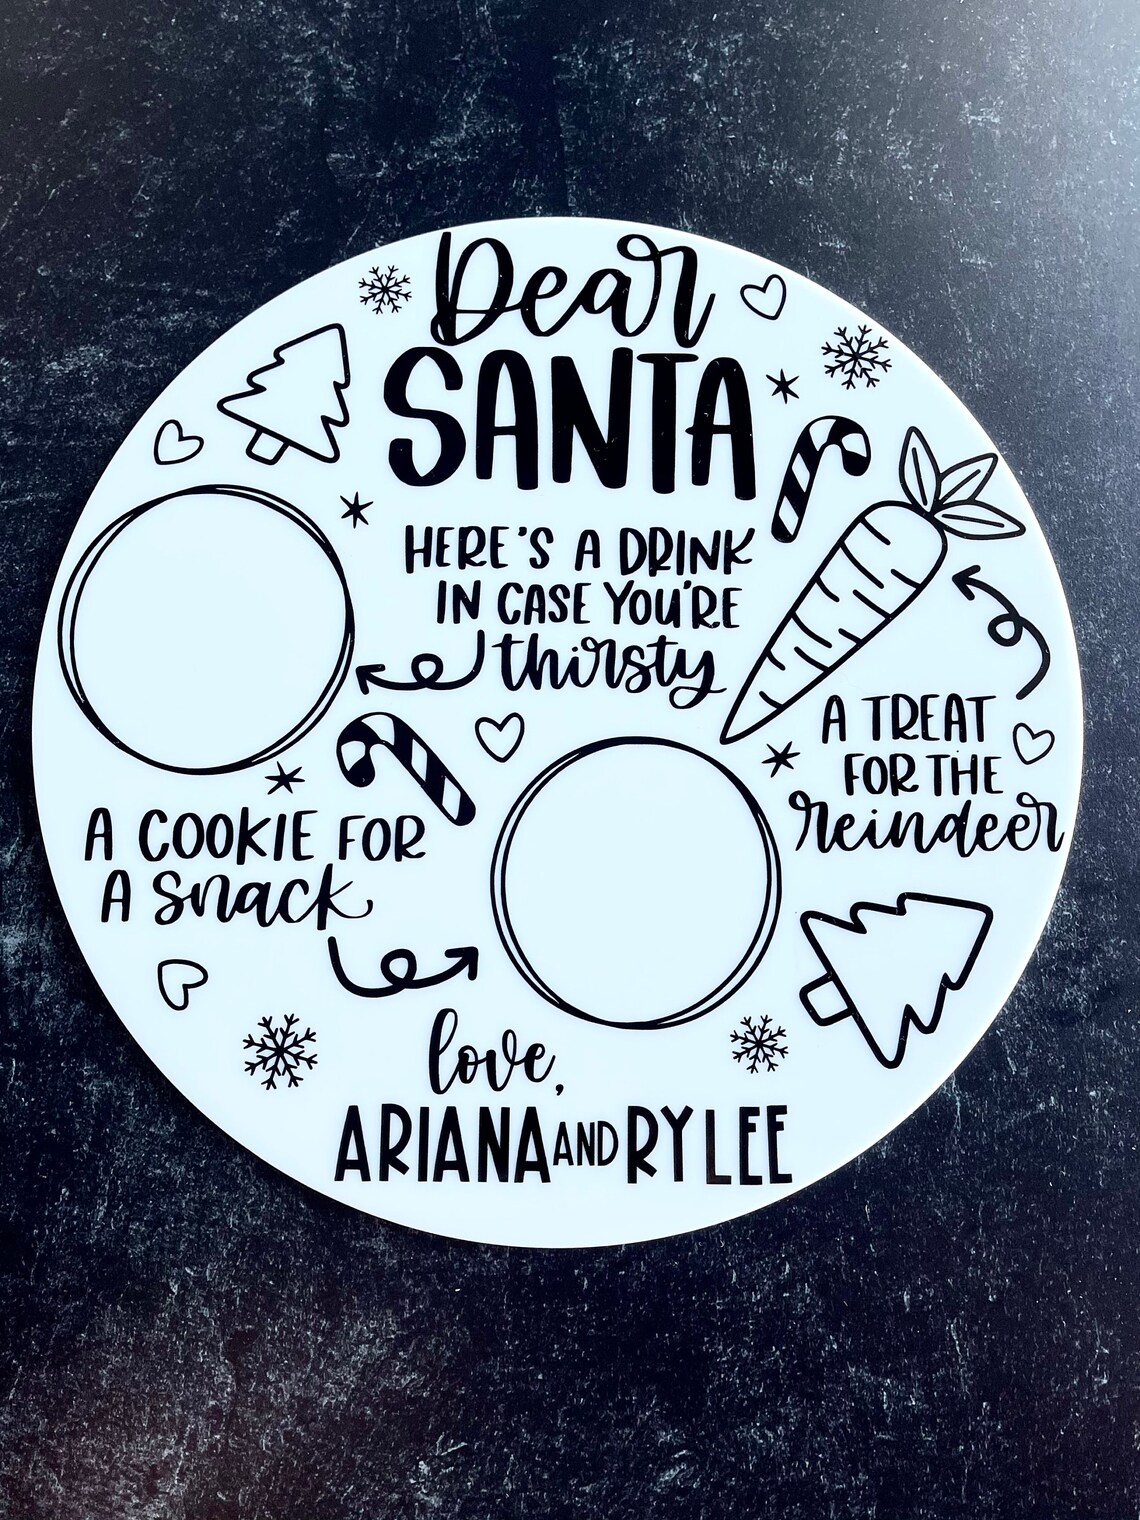 Dear
SANTA
HERE'S A DRINK
IN CASE YOU'RE
thirsty
A TREAT
FOR THE
reindeer
A COOKIE FOR
A snack
love,
ARIANA AND RYLEE